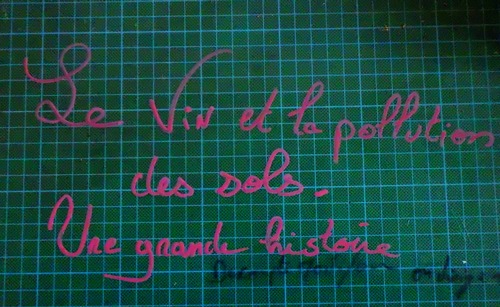 Le Vin et la pollution
des sols.
Une grande histoire